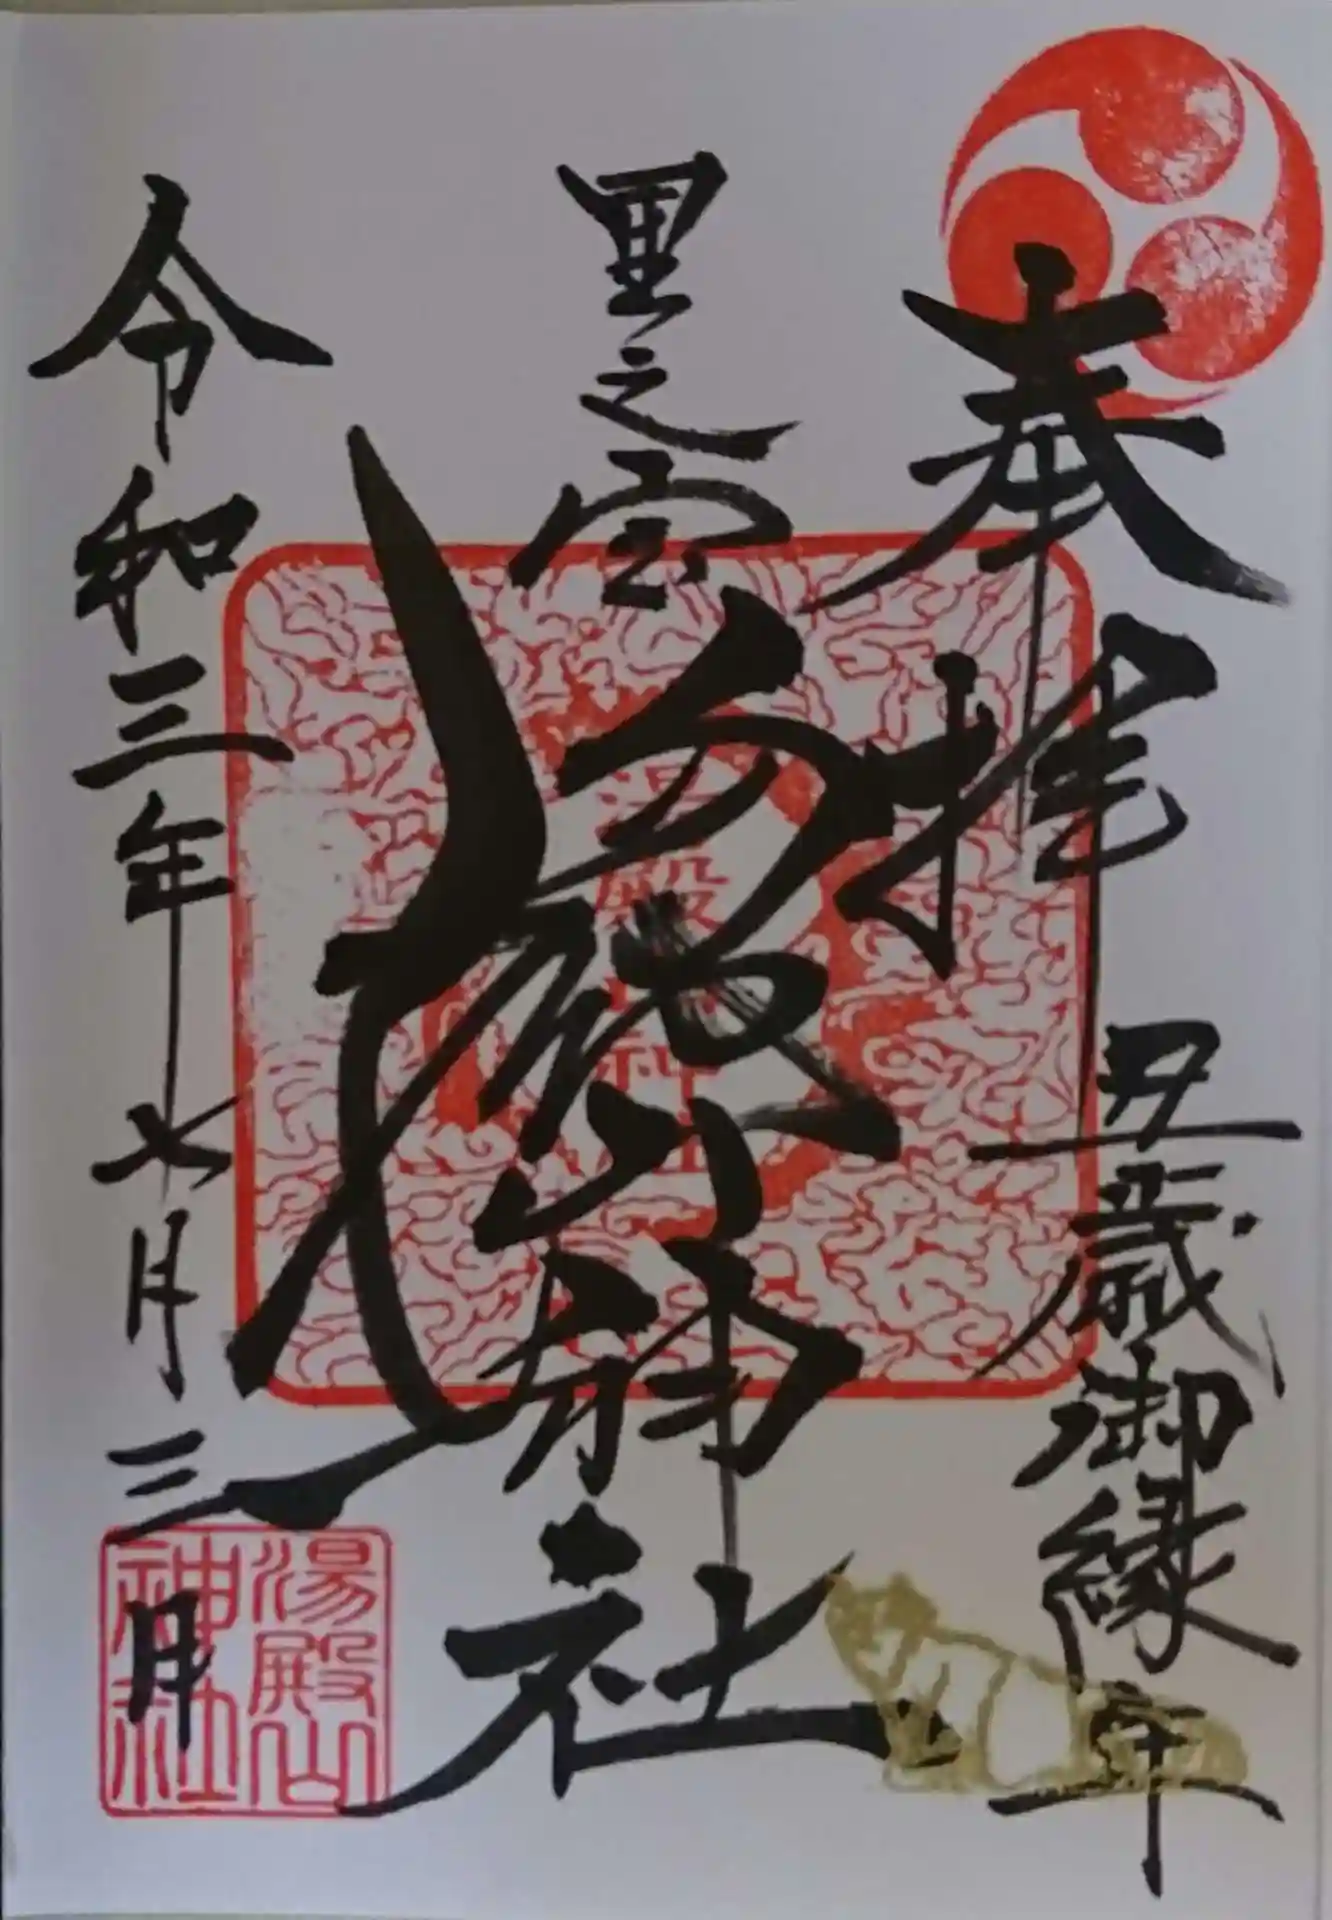 奉拝
丑歳御縁年
里之宮
湯殿山神社
令和三年七月三日
湯殿山
神社
湯殿山神社